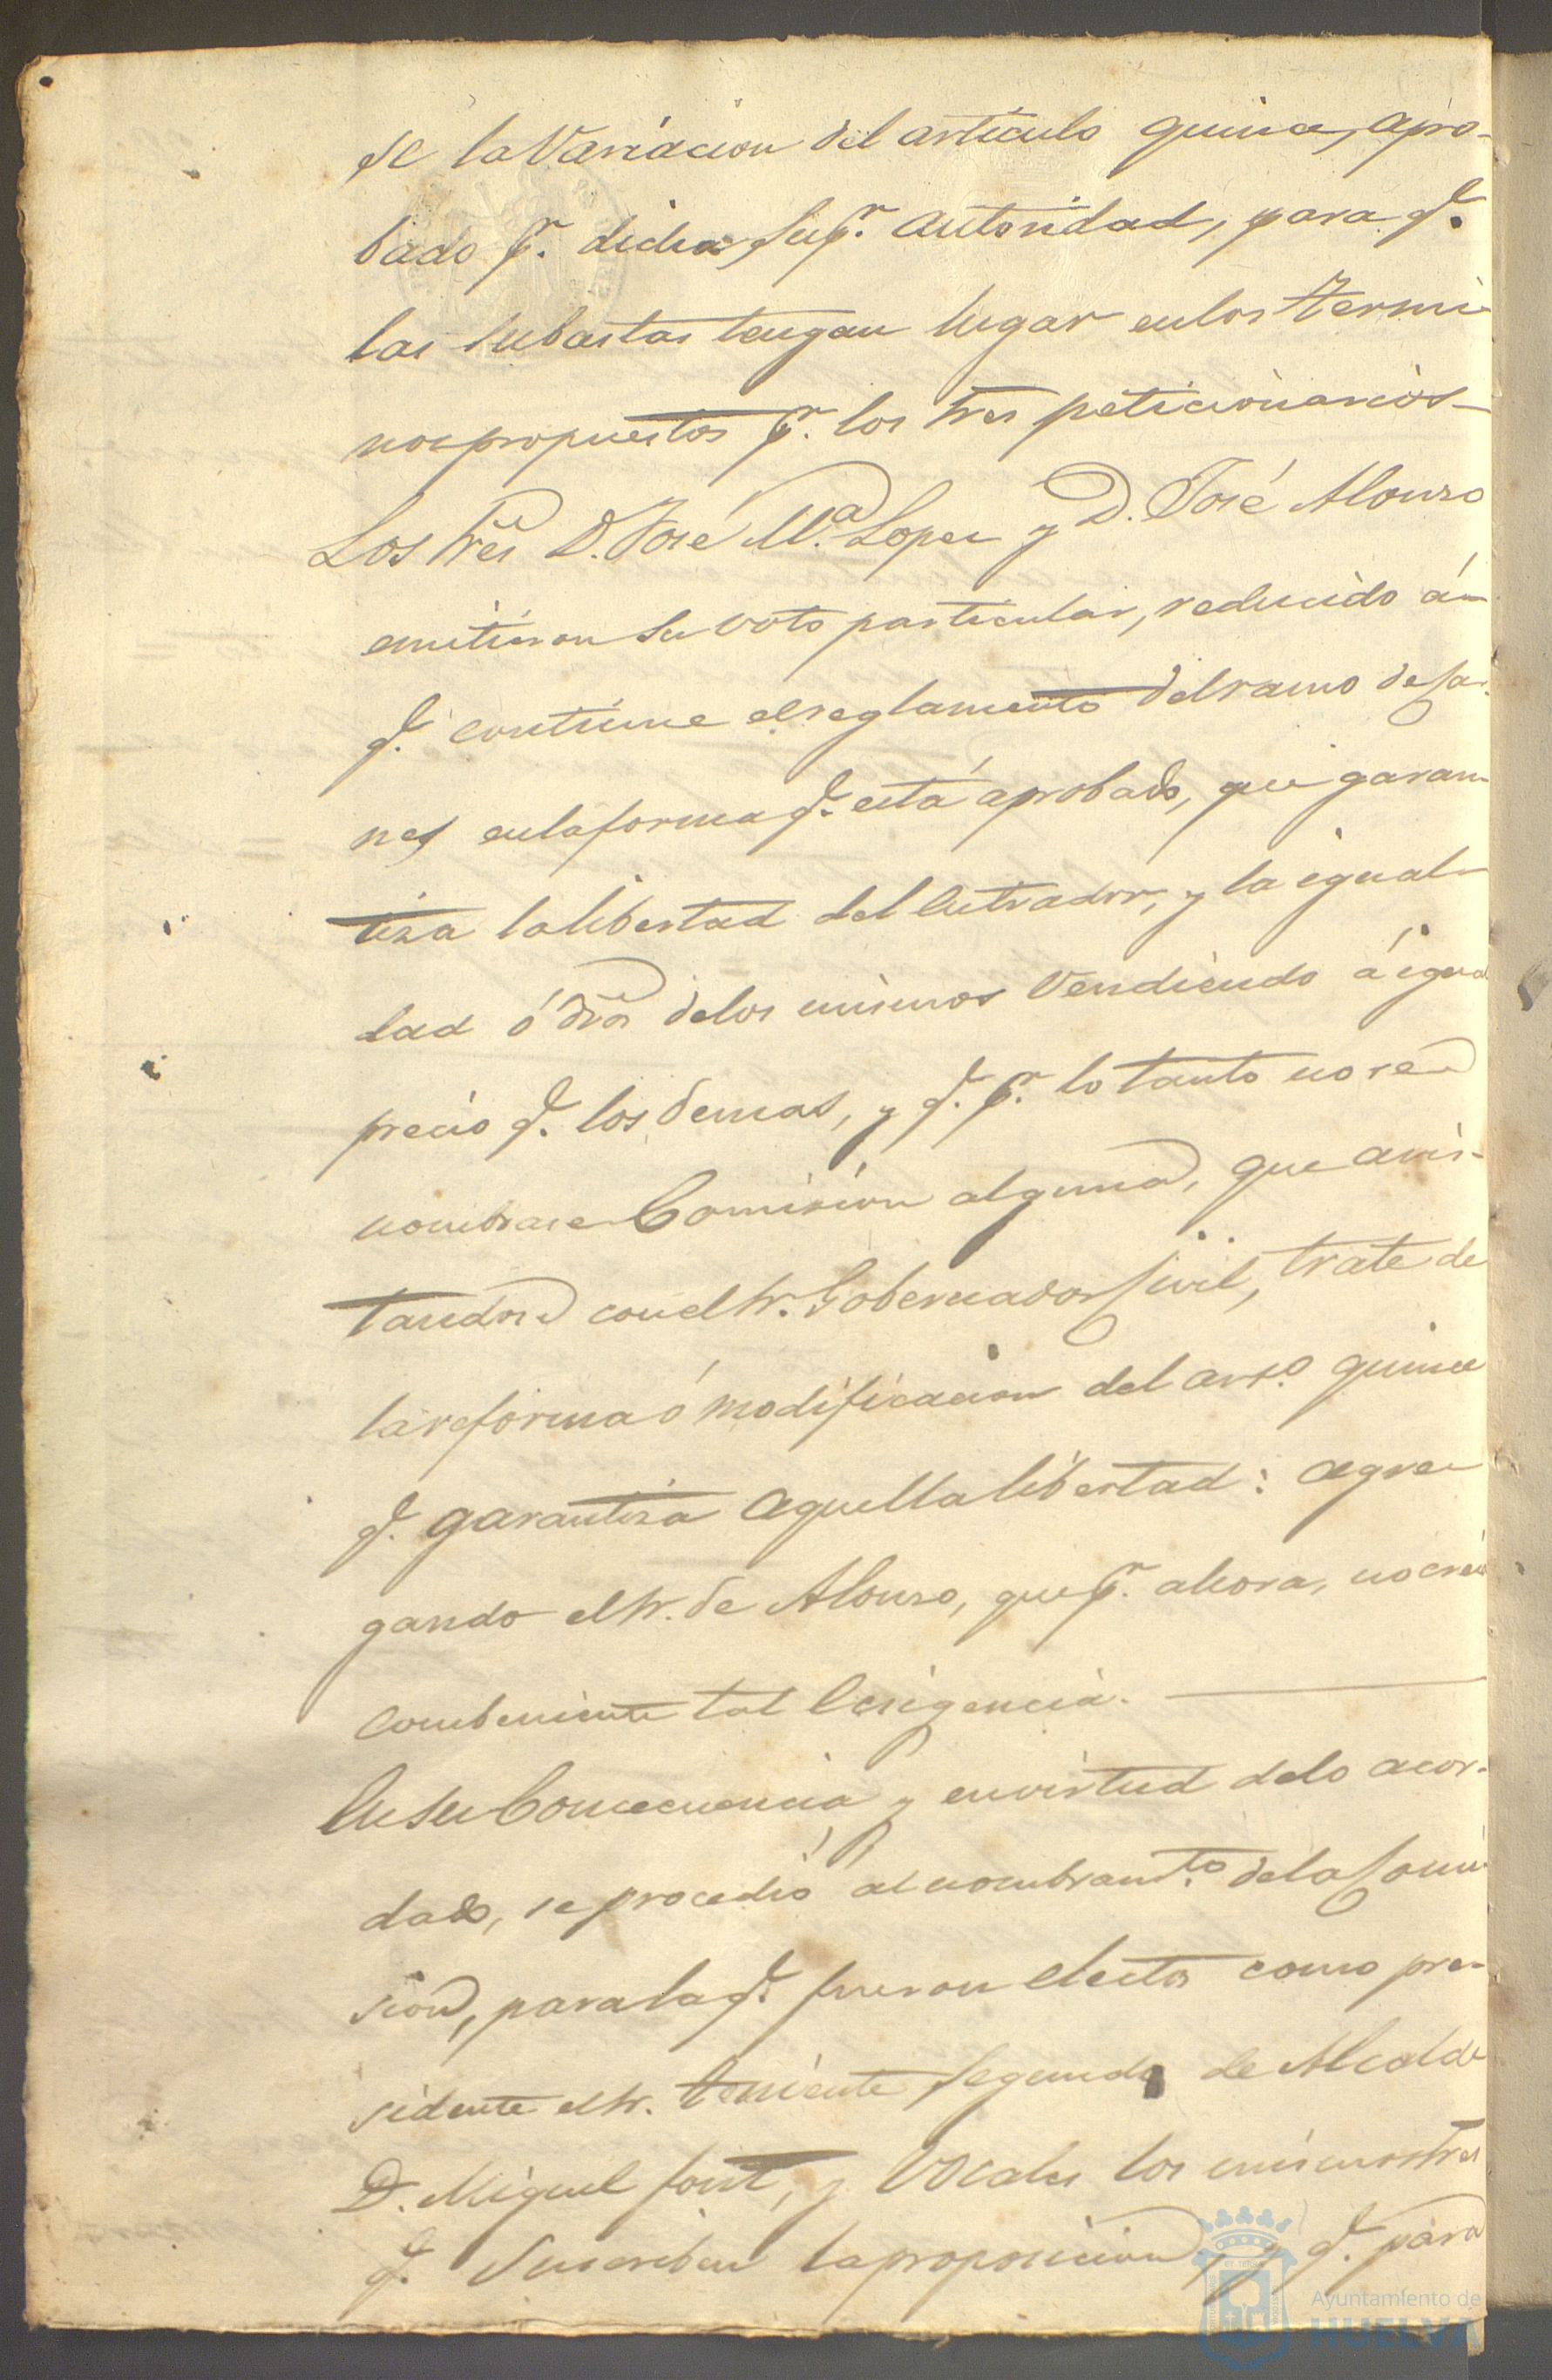 se la Variacion del articulo quince, apro-
bado pr. dicha Supr. autoridad, para qe.
las Subastas tengan lugar en los termi-
nos propuestos pr. los tres peticionarios-
Los Sres. D. José Ma. Lopez y D. José Alonso
emitieron su voto particular, reducido á-
qe. continue el reglamento del ramo de Car-
nes en la forma qe. está aprobado, que garan-
tiza la libertad del Entrador, y la igual-
dad ó dros de los mismos vendiendo á igual
precio qe. los demas, y qe. pr. lo tanto no se
nombrase Comision alguna, que avis-
tandose con el Sr. Gobernador Civil, trate de
la reforma ó modificacion del arto. quince
qe. garantiza aquella libertad: agre-
gando el Sr. de Alonso, que pr. ahora, no creia
combeniente tal Ecsigencia.
En su Consecuencia y en virtud de lo acor-
dado, se procedió al nombramto. de la Comi-
sion, para la qe. fueron electos como pre-
sidente el Sr. teniente Segundo de Alcalde
D. Miguel font, y Vocales los mismos tres
qe. Suscriben la proposicion, y qe. para
Ayuntamiento de
HUELVA